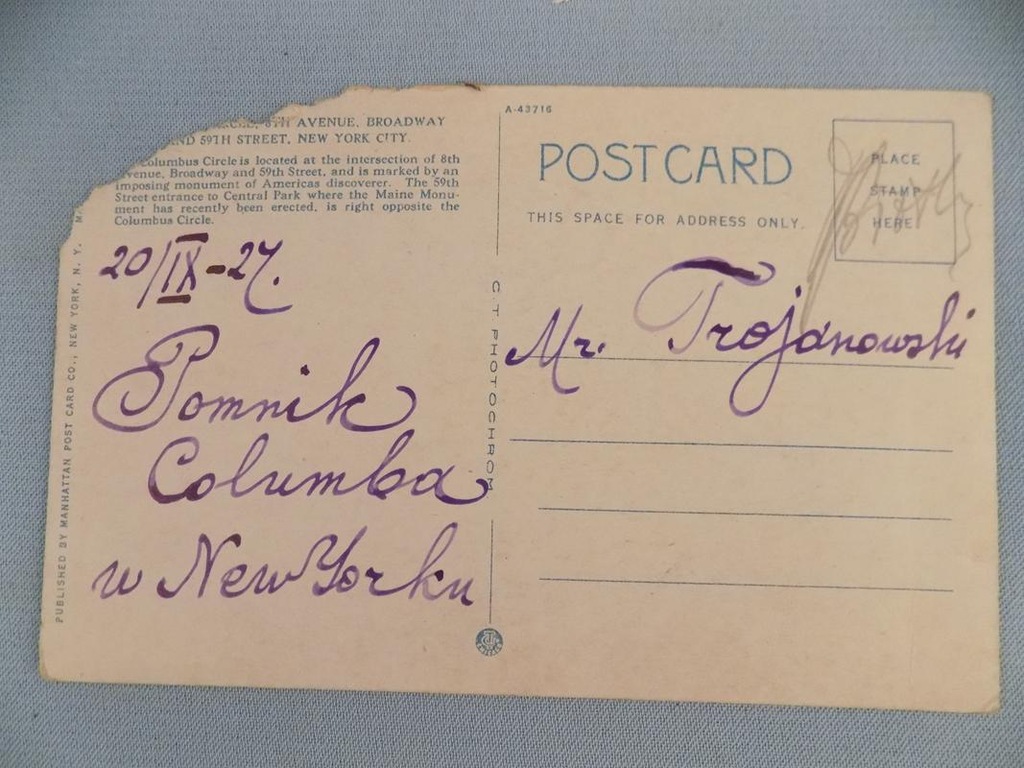 8TH AVENUE, BROADWAY
AND 59TH STREET, NEW YORK CITY.
Columbus Circle is located at the intersection of 8th
Avenue, Broadway and 59th Street, and is marked by an
imposing monument of Americas discoverer. The 59th
Street entrance to Central Park where the Maine Monu-
ment has recently been erected, is right opposite the
Columbus Circle.
20/IX-27.
Pomnik
Columba
w New Yorku
PUBLISHED BY MANHATTAN POST CARD CO., NEW YORK, N. Y.
C T PHOTOCHROM
A-43716
POST CARD
THIS SPACE FOR ADDRESS ONLY.
PLACE
STAMP
HERE
Mr. Trojanowski